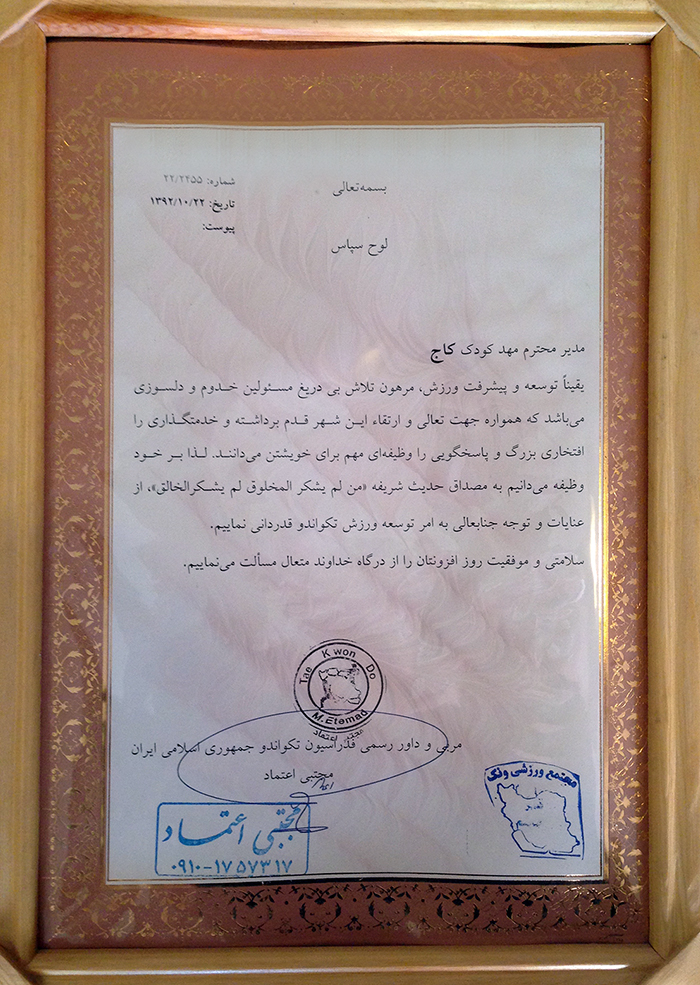 بسمه‌تعالی
شماره: ۲۲/۲۴۵۵
تاریخ: ۱۳۹۲/۱۰/۲۲
پیوست:
لوح سپاس
مدیر محترم مهد کودک کاج
یقیناً توسعه و پیشرفت ورزش، مرهون تلاش بی دریغ مسئولین خدوم و دلسوزی
می‌باشد که همواره جهت تعالی و ارتقاء این شهر قدم برداشته و خدمتگذاری را
افتخاری بزرگ و پاسخگویی را وظیفه‌ای مهم برای خویشتن می‌دانند. لذا بر خود
وظیفه می‌دانیم به مصداق حدیث شریفه «من لم یشکر المخلوق لم یشکرالخالق»، از
عنایات و توجه جنابعالی به امر توسعه ورزش تکواندو قدردانی نماییم.
سلامتی و موفقیت روز افزونتان را از درگاه خداوند متعال مسألت می‌نماییم.
Tae Kwon Do
M.Etemad
مجتبی اعتماد
مربی و داور رسمی فدراسیون تکواندو جمهوری اسلامی ایران
مجتبی اعتماد
مجتبی اعتماد
۰۹۱۰-۱۷ ۵۷۳ ۱۷
مجتمع ورزشی ونک